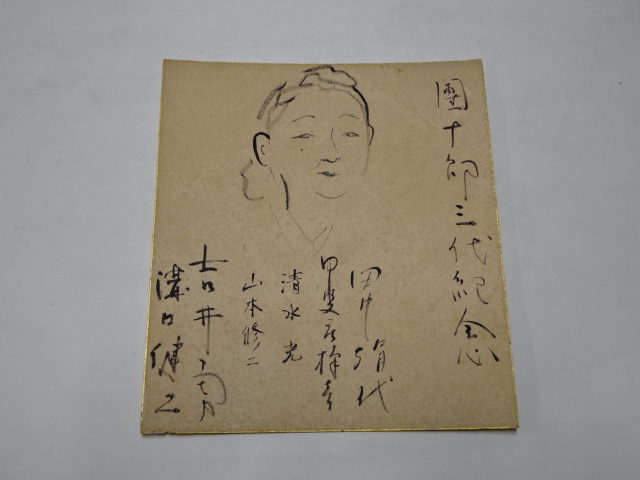 團十郎三代紀念
田中絹代
甲斐庄楠音
清水光
山本修二
吉井勇
溝口健二